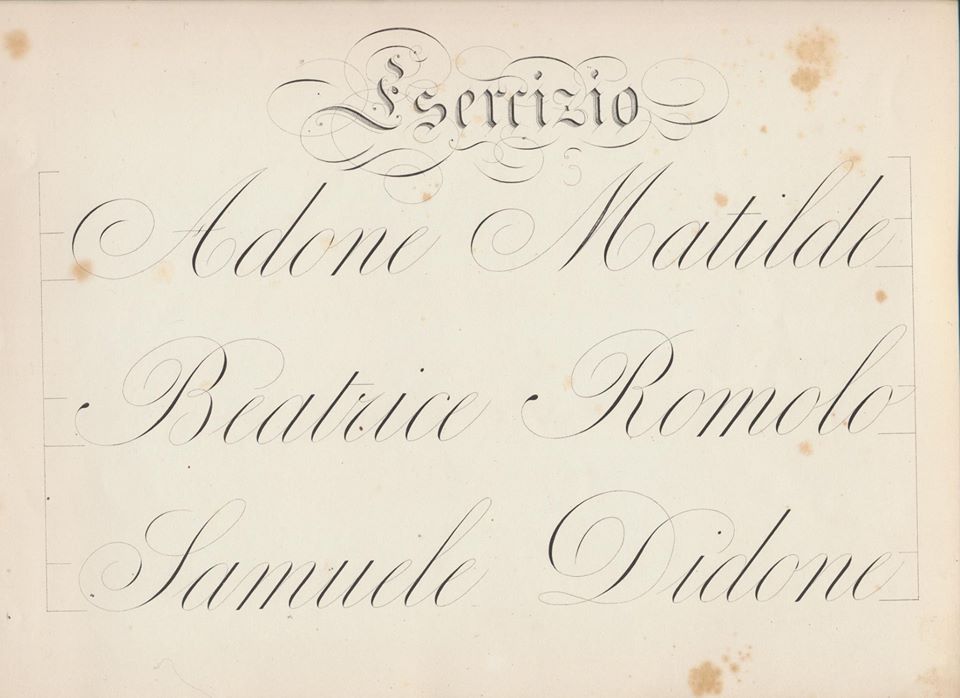 Esercizio
Adone Matilde
Beatrice Romolo
Samuele Didone